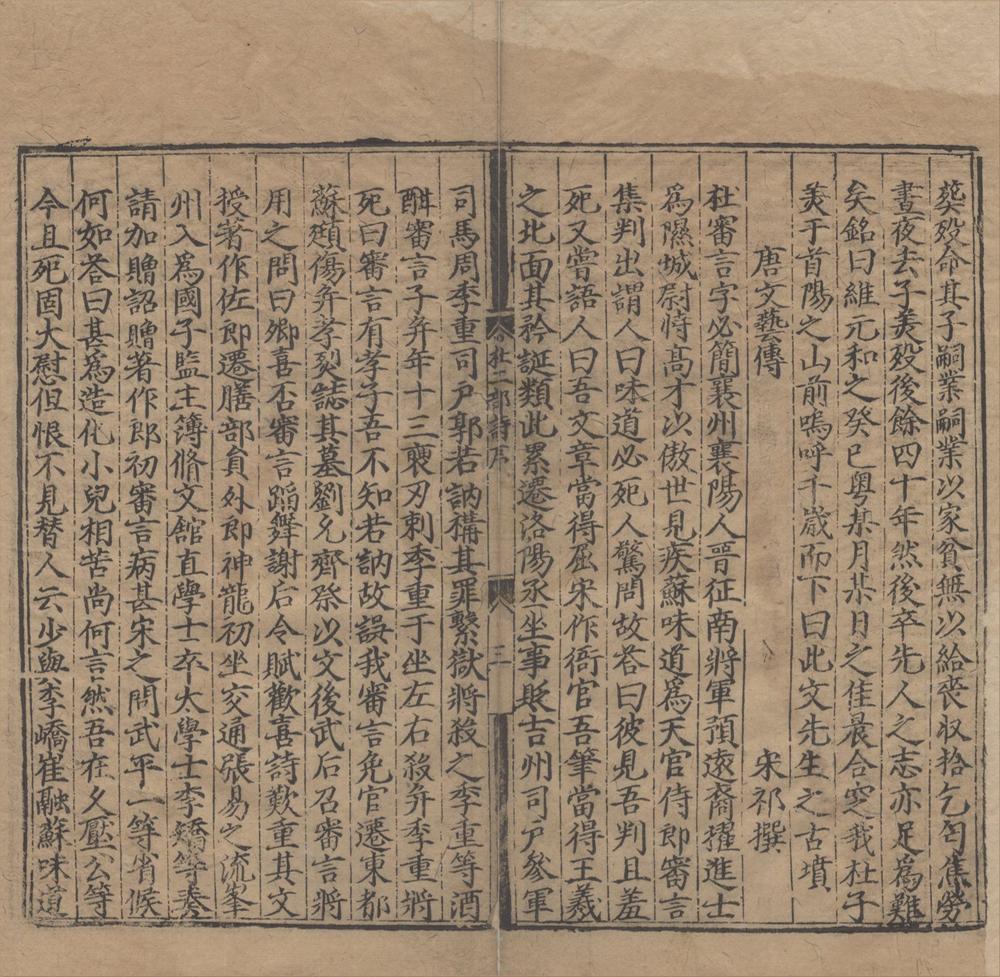 葬歿命其子嗣業嗣業以家貧無以給喪収拾乞匄焦勞
晝夜去子美歿後餘四十年然後卒先人之志亦足為難
矣銘曰維元和之癸巳粤某月某日之佳晨合窆我杜子
美于首陽之山前嗚呼千歲而下曰此文先生之古墳
唐文藝傳
宋祁撰
杜審言字必簡襄州襄陽人晉征南將軍預遠裔擢進士
為隰城尉恃高才以傲世見疾蘇味道為天官侍郎審言
集判出謂人曰味道必死人驚問故荅曰彼見吾判且羞
死又嘗語人曰吾文章當得屈宋作衙官吾筆當得王羲
之北面其矜誕類此累遷洛陽丞坐事貶吉州司戸參軍
杜工部詩序
三
司馬周季重司戸郭若訥構其罪繫獄將殺之季重等酒
酣審言子并年十三褏刃刺季重于坐左右殺并季重將
死曰審言有孝子吾不知若訥故誤我審言免官還東都
蘇頲傷并孝烈誌其墓劉允齊祭以文後武后召審言將
用之問曰卿喜否審言蹈舞謝后令賦歡喜詩歎重其文
授著作佐郎遷膳部員外郎神龍初坐交通張易之流峯
州入為國子監主簿脩文館直學士卒太學士李嶠等奏
請加贈詔贈著作郎初審言病甚宋之問武平一等省候
何如荅曰甚為造化小兒相苦尚何言然吾在久壓公等
今且死固大慰但恨不見替人云少與李嶠崔融蘇味道